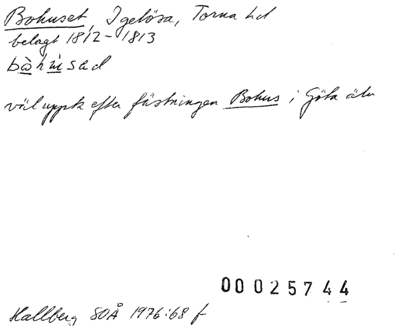 Bohuset, Igelösa, Torna hd
belagt 1812-1813
väl uppk efter fästningen Bohus i Göta älv
00025744
Hallberg SOÅ 1976:68 f